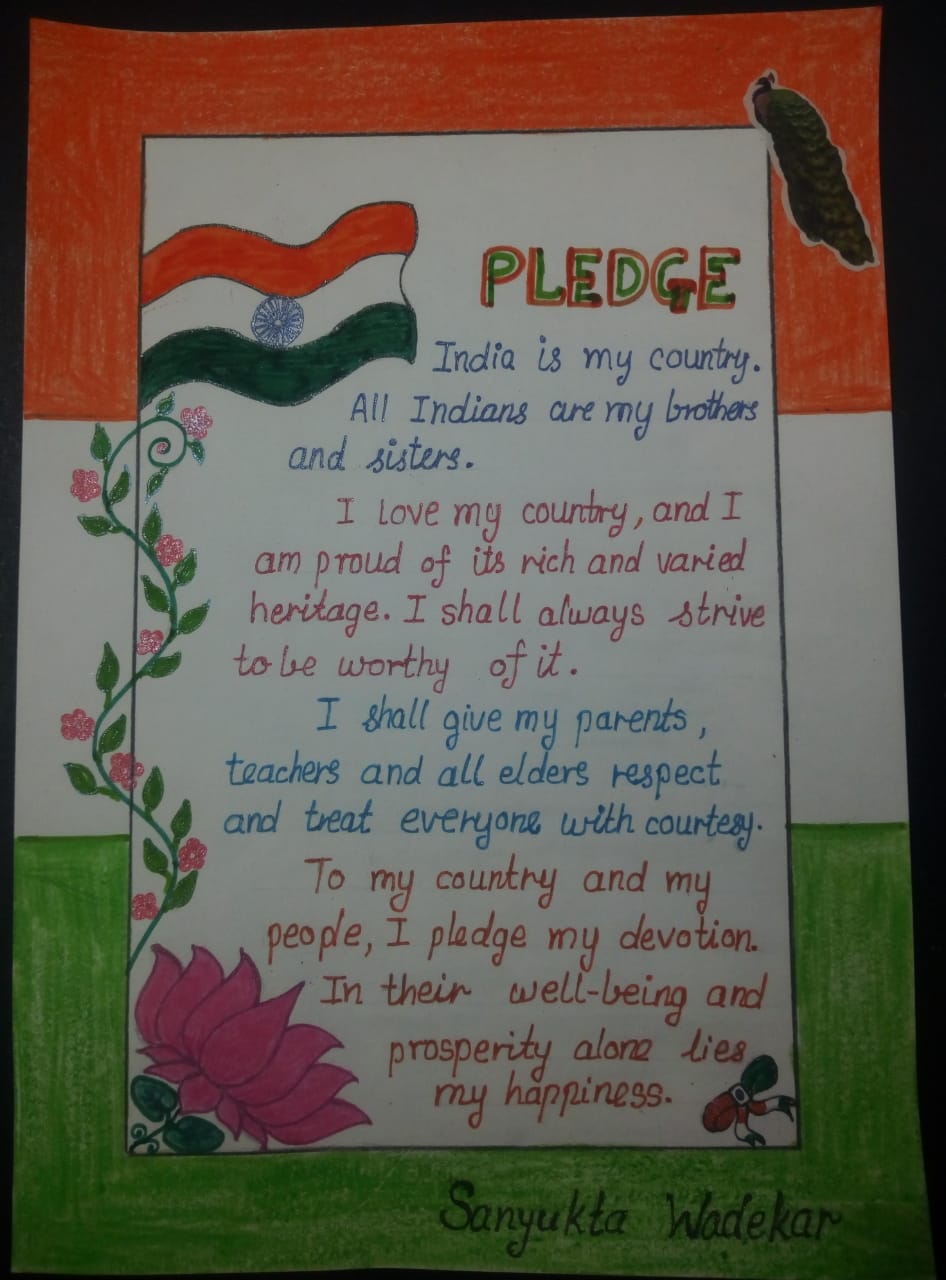 PLEDGE
India is my country.
All Indians are my brothers
and sisters.
I love my country, and I
am proud of its rich and varied
heritage. I shall always strive
to be worthy of it.
I shall give my parents,
teachers and all elders respect
and treat everyone with courtesy.
To my country and my
people, I pledge my devotion.
In their well-being and
prosperity alone lies
my happiness.
Sanyukta Wadekar